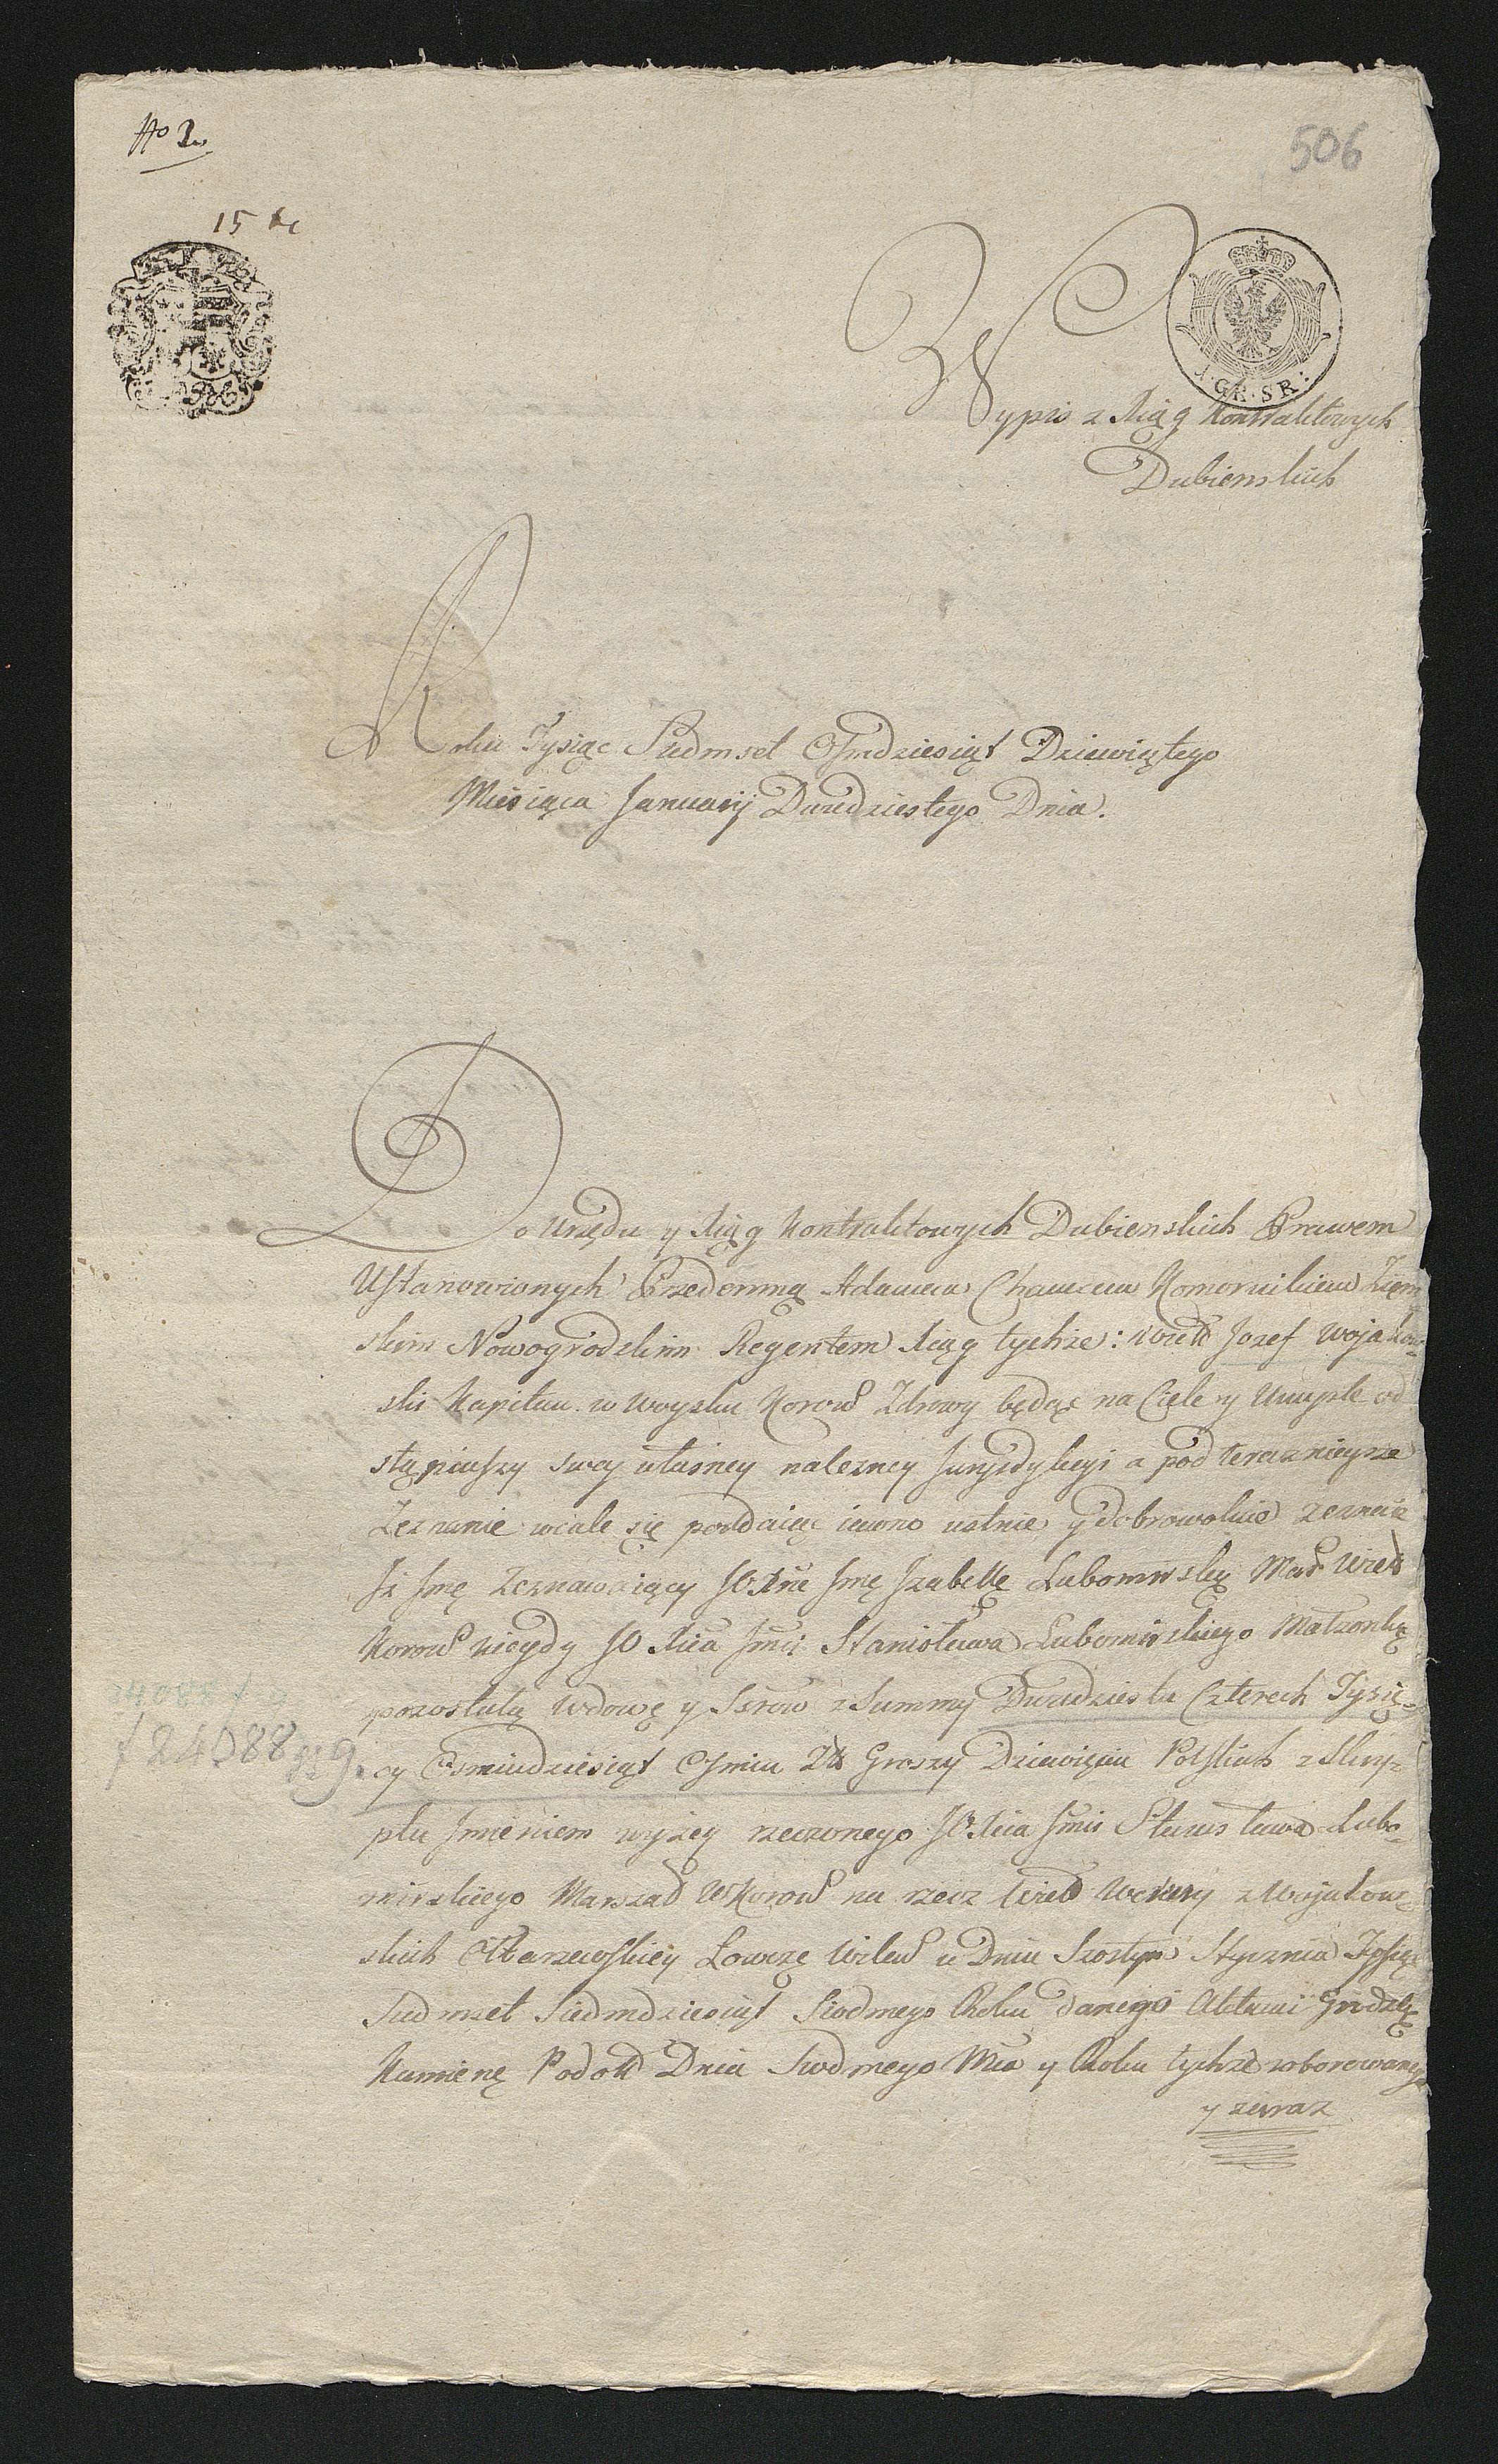 No 3.
506
15
1. GR. SR:
Wypis z Xiąg Kontraktowych
Dubienskich
Roku Tysiąc Siedmset Osmdziesiąt Dziewiątego
Miesiąca Januarij Dwudziestego Dnia.
Do Urzędu y Xiąg Kontraktowych Dubienskich Prawem
Ustanowionych Przedemną Adamem Komornikiem Ziem
skim Nowogrodzkim Regentem Xiąg tychże: Jozef Wojakow-
ski Kapitan w Woysku Koron Zdrowy będąc na Ciele y Umysle od
stąpiwszy swey własney nalezney Jurysdykcyi a pod teraznieysze
Zeznanie wcale się poddaiąc iawno ustnie y dobrowolnie zeznał
Iż Jmć Zeznawaiący JO Xnę Jmć Izabellę Lubomirską Mar Wiel
Koron niegdy JO Xcia Jmci Stanisława Lubomirskiego Małzonkę
pozostałą Wdowę y z Summy Dwudziestu Czterech Tysię-
24088 f 9
f 24088 gr 9.
cy Osmiudziesiąt Osmiu Zł Groszy Dziewięciu Polskich z Skry-
ptu Jmieniem wyżey rzeczonego JO Xcia Jmci Stanisława Lubo-
mirskiego Marszał W Koron na rzecz z Wojakow-
skich Ołtarzewskiey Łowczę w Dniu Szostym Stycznia Tysiąc
Siedmset Siedmdziesiąt Siodmego Roku danego Aktami Grodzkę
Kamienę Podol Dnia Siodmego Mca y Roku tychże roborowanego
y zeyraz